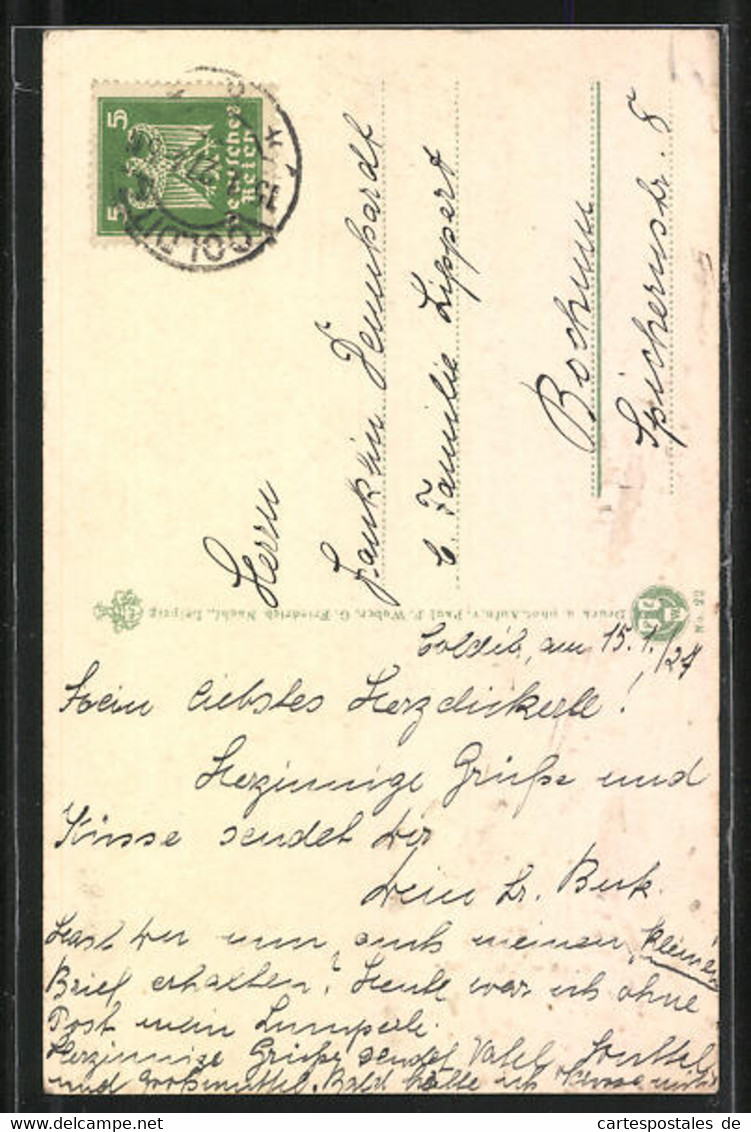 5
5
Deutsches
Reich
COLDITZ
15.1.27
Herrn
Dennhardt
b. Familie Lippert
Bochum
Spichernstr. 8
Druck u. phot. Aufn. v. Paul F. Weber, G. Friedrich Nachf., Leipzig
No. 22
Colditz, am 15.1./27
Mein liebstes Herzdickerle!
Herzinnige Grüße und
Küsse sendet Dir
Dein Br. Buk.
Hast Du nun auch meinen „kleinen“
Brief erhalten? Heute war ich ohne
Post mein Lumperle.
Herzinnige Grüße sendet Vatel, Muttel
und Großmuttel. Bald hätte ich
cartespostales de